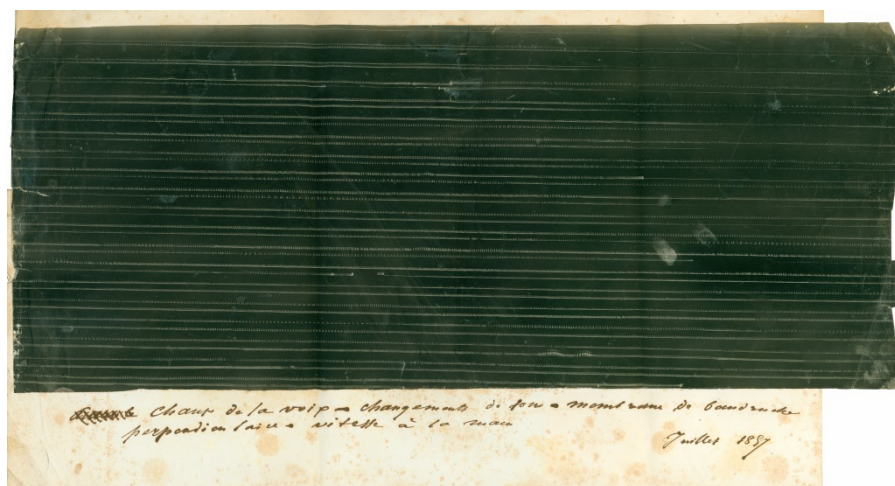 chant de la voix – changement de ton – membrane de baudruche
perpendiculaire – vitesse à la main
Juillet 1857